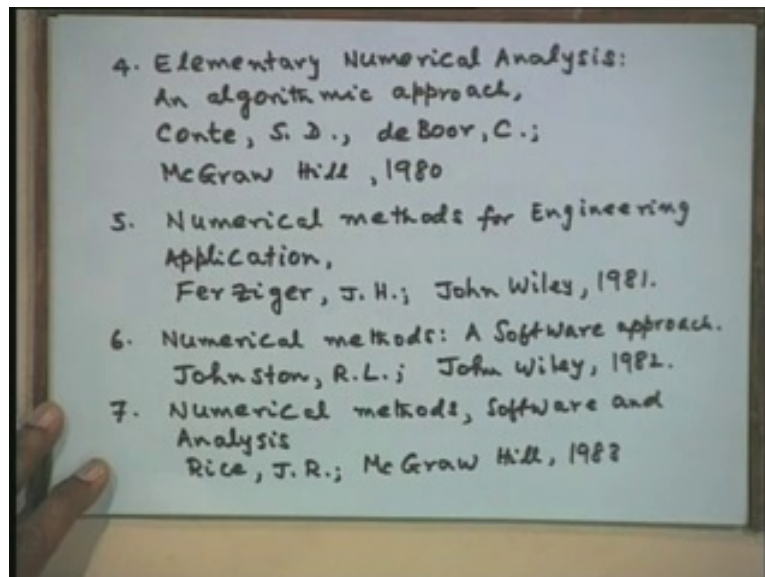 4. Elementary Numerical Analysis:
An algorithmic approach,
Conte, S. D., de Boor, C.;
McGraw Hill, 1980
5. Numerical methods for Engineering
Application,
Ferziger, J. H.; John Wiley, 1981.
6. Numerical methods: A Software approach.
Johnston, R.L.; John Wiley, 1982.
7. Numerical methods, Software and
Analysis
Rice, J. R.; McGraw Hill, 1983